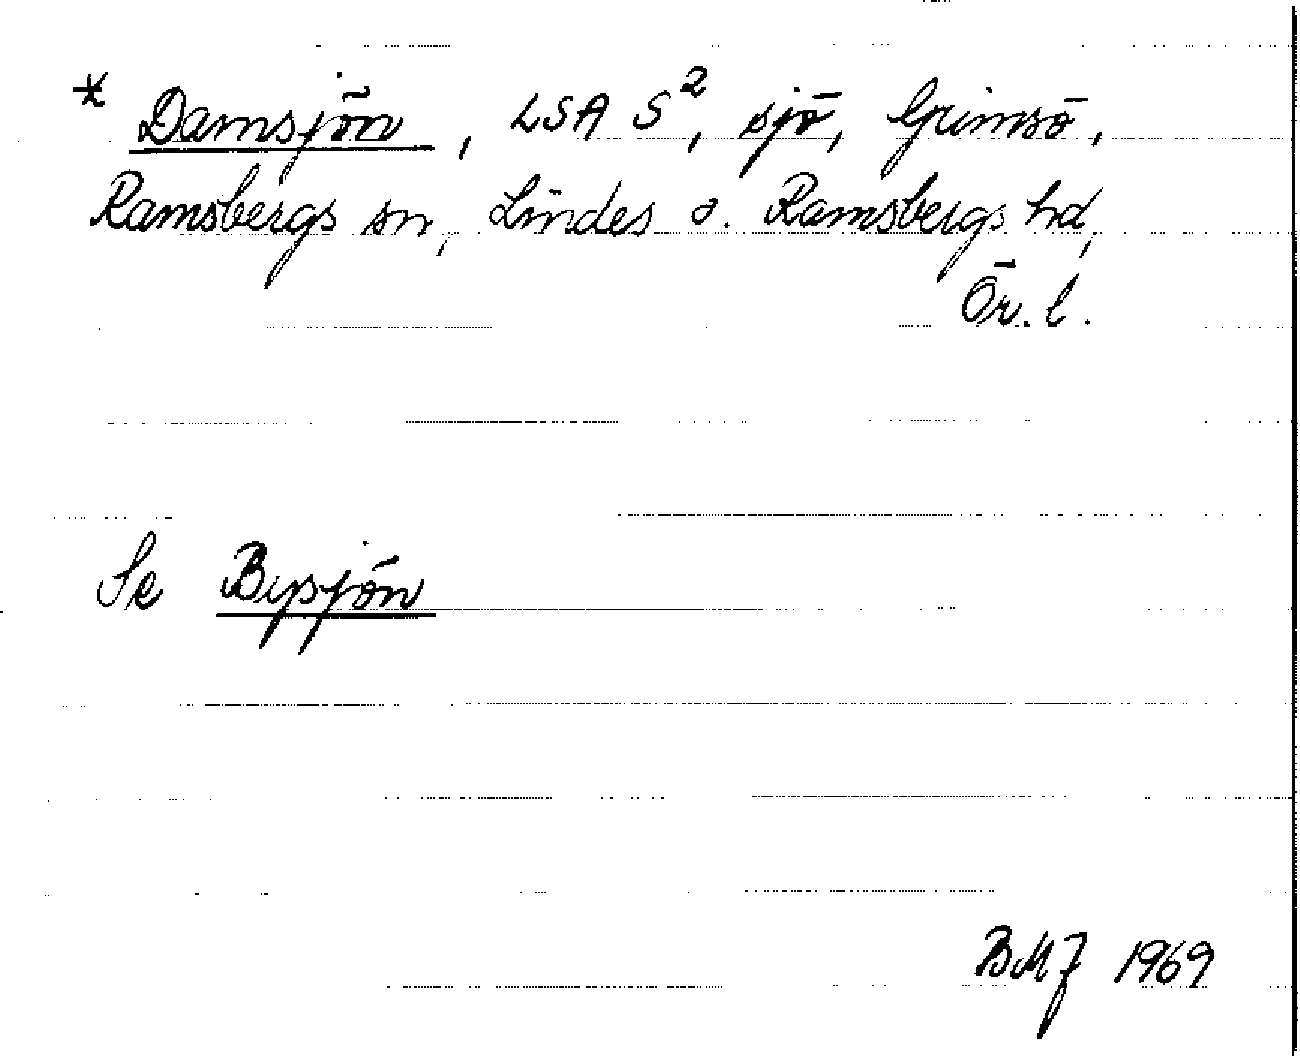 * Damsjön, LSA S², sjö, Grimsö,
Ramsbergs sn, Lindes o. Ramsbergs hd,
Ör. l.
Se Bysjön
BMJ 1969